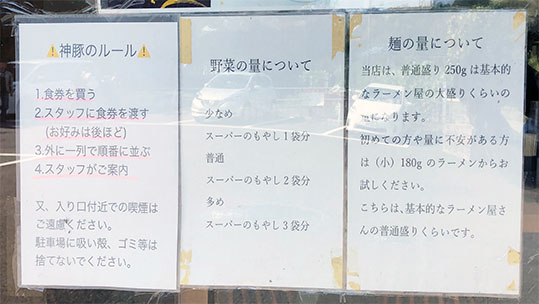 ⚠️神豚のルール⚠️
1.食券を買う
2.スタッフに食券を渡す
(お好みは後ほど)
3.外に一列で順番に並ぶ
4.スタッフがご案内
又、入り口付近での喫煙は
ご遠慮ください。
駐車場に吸い殻、ゴミ等は
捨てないでください。
野菜の量について
少なめ
スーパーのもやし1袋分
普通
スーパーのもやし2袋分
多め
スーパーのもやし3袋分
麺の量について
当店は、普通盛り250gは基本的
なラーメン屋の大盛りくらいの
になります。
初めての方や量に不安がある方
は（小）180gのラーメンからお
試しください。
こちらは、基本的なラーメン屋さ
んの普通盛りくらいです。